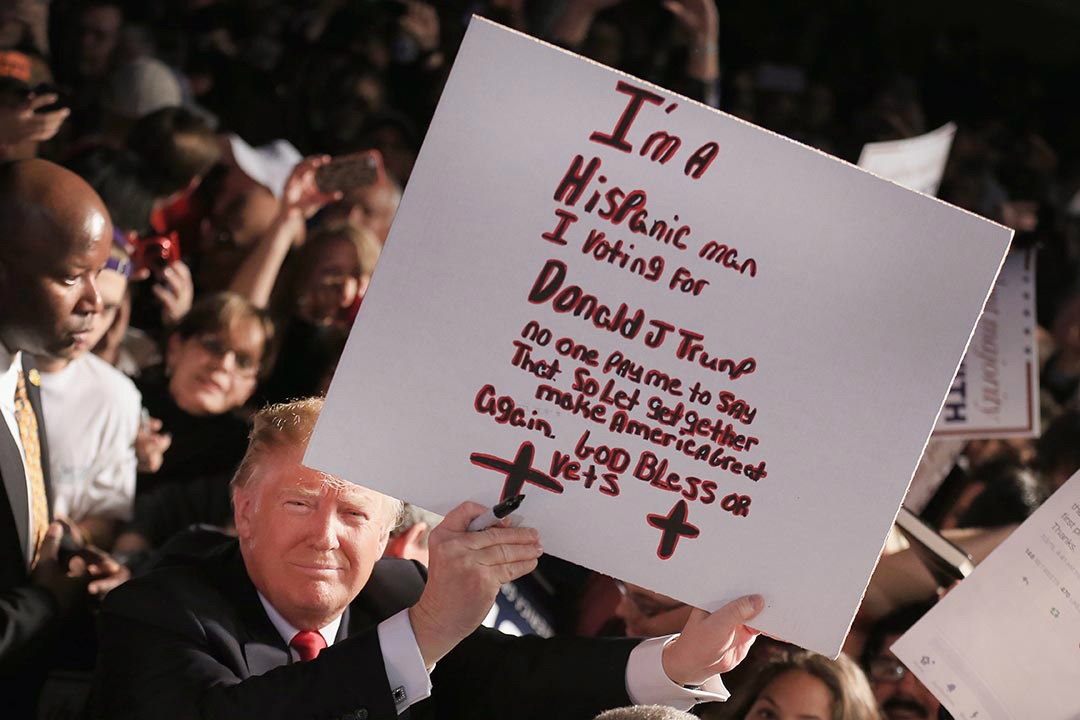 I'm A
Hispanic man
I voting for
Donald J Trump
no one pay me to say
That. So Let get gether
make America Great
Again. GOD Bless or
vets
majority
first p
Thanks.